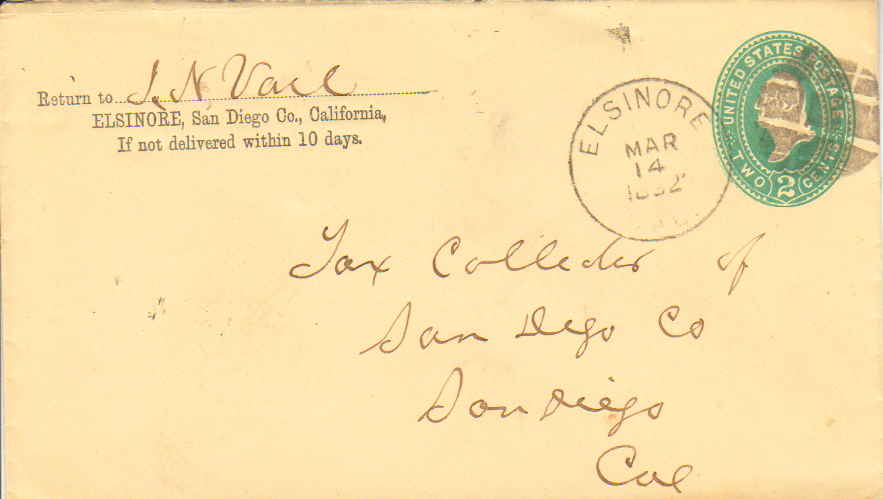 Return to I. N. Vail
ELSINORE, San Diego Co., California,
If not delivered within 10 days.
ELSINORE
MAR
14
1892
UNITED STATES POSTAGE
TWO 2 CENTS
Tax Collector of
San Diego Co
San Diego
Cal